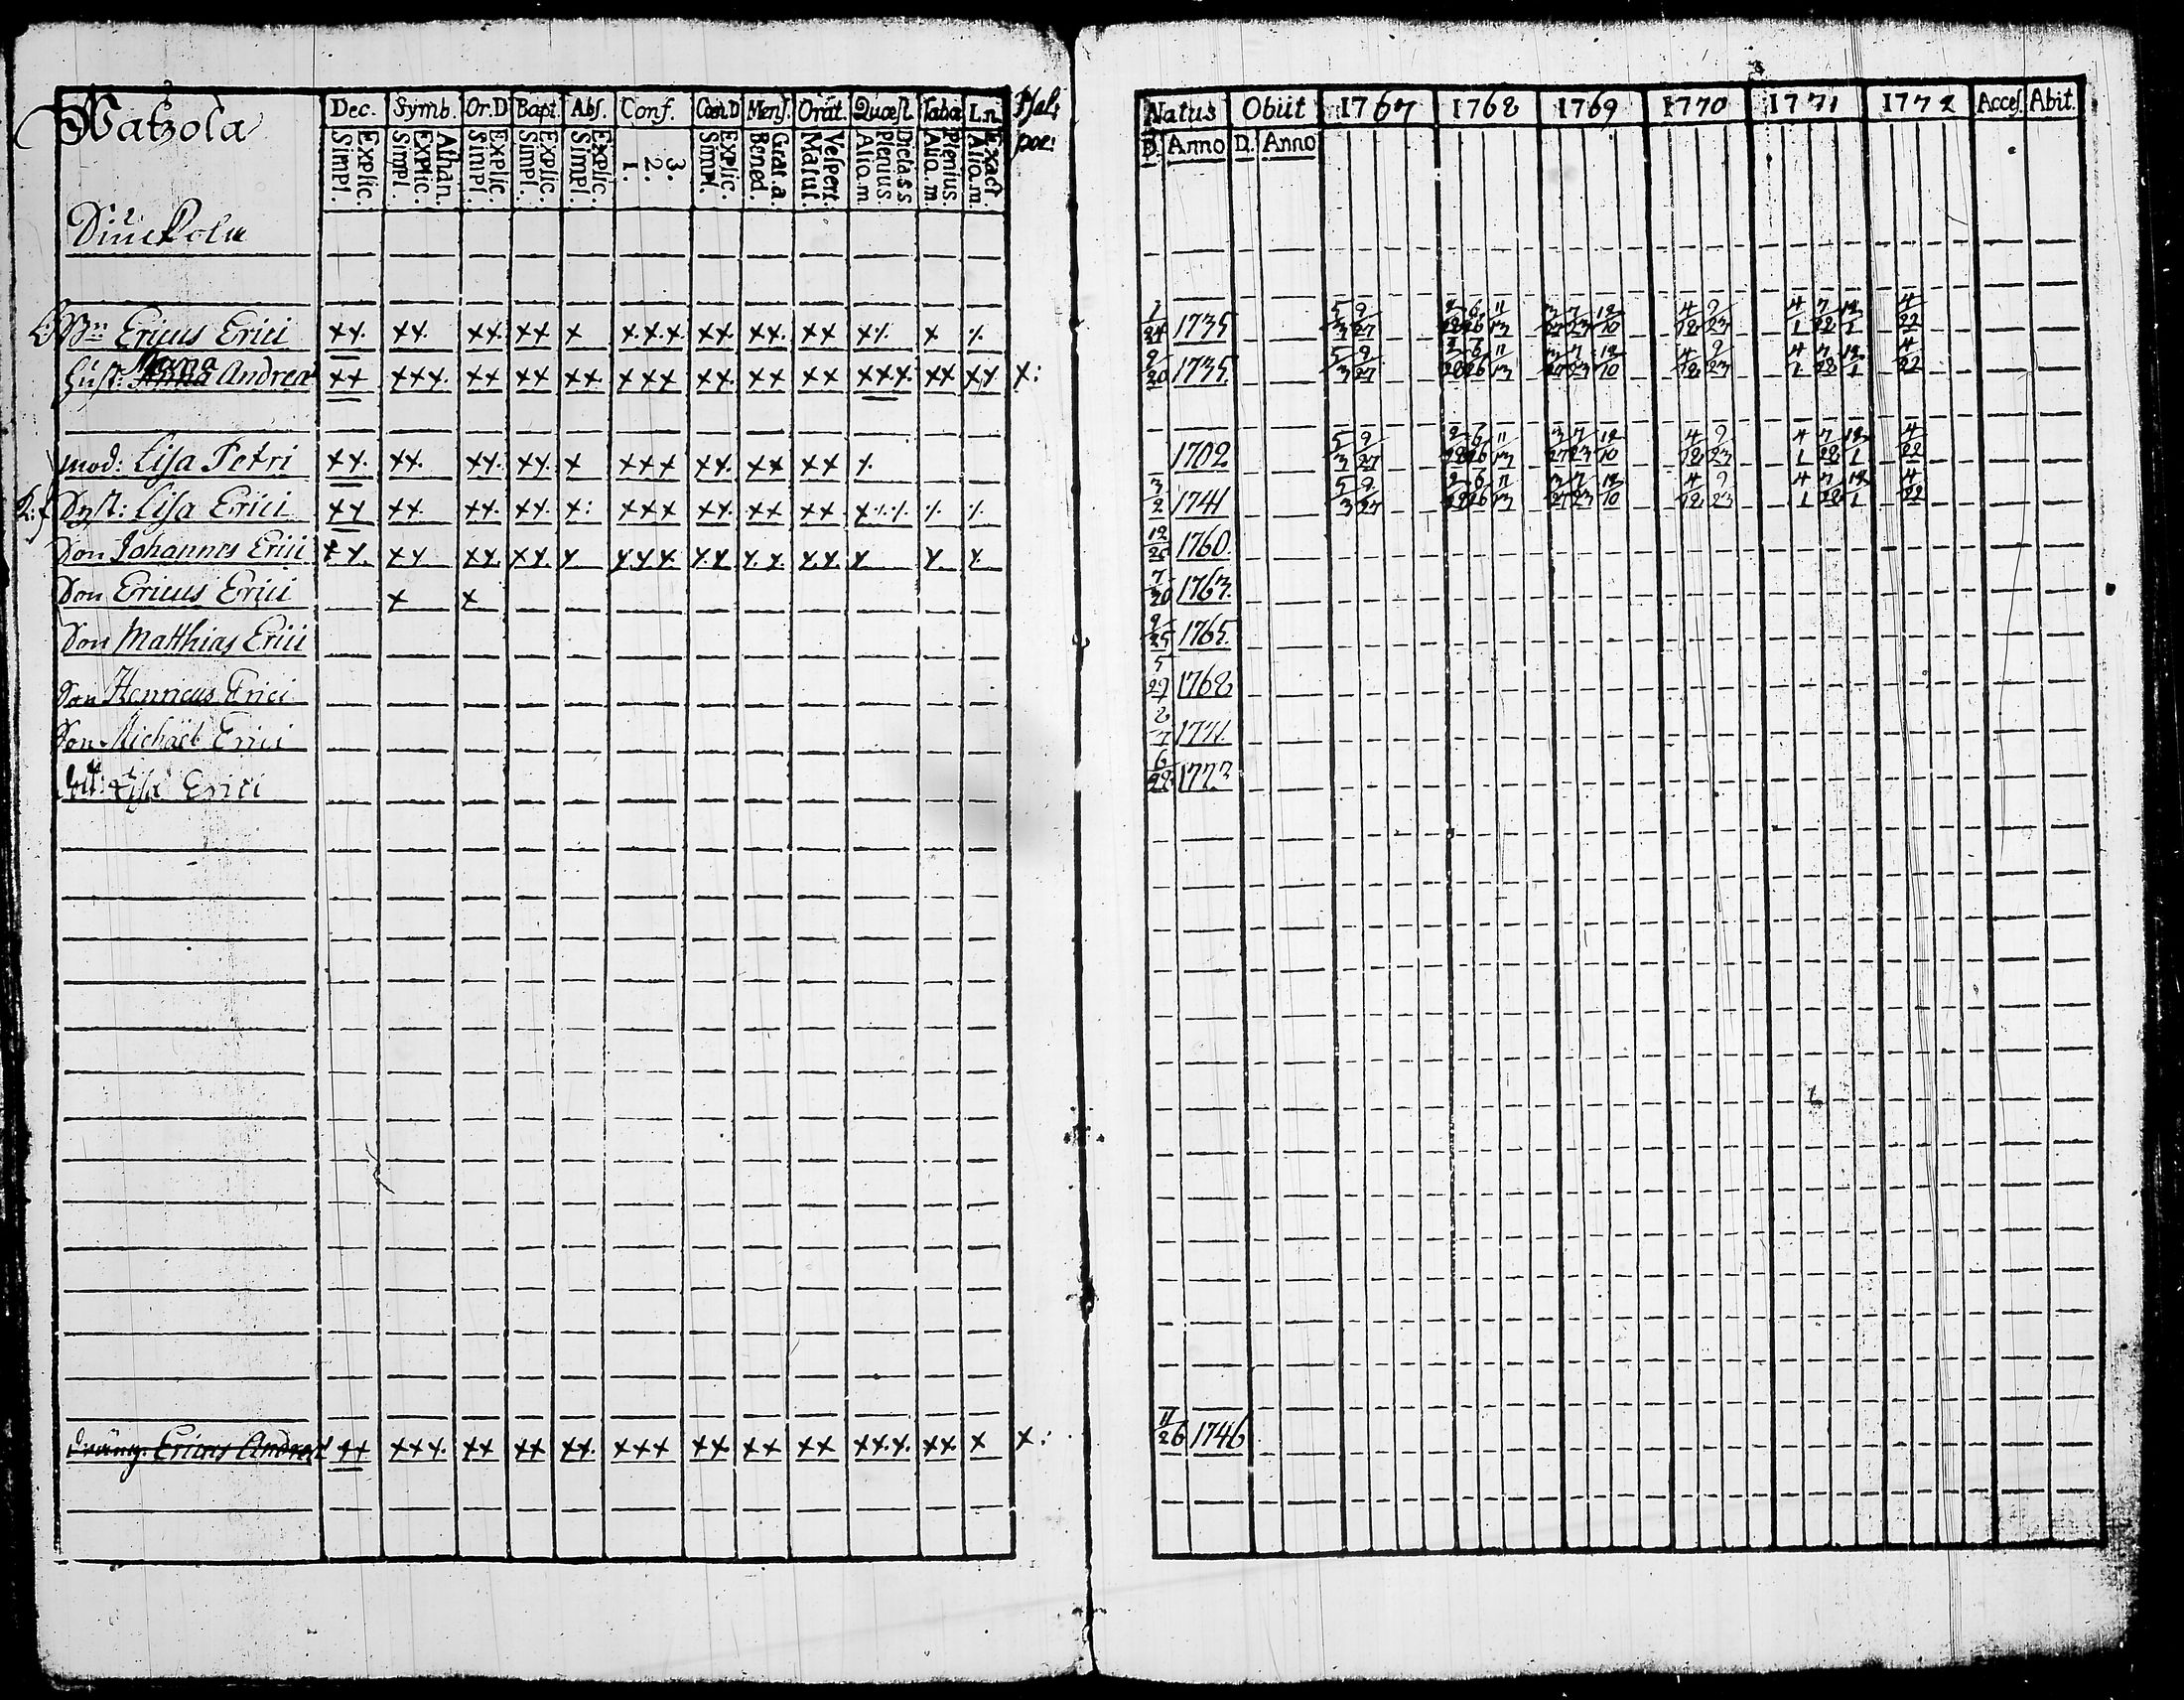 Watzola
Dec. Symb. Or.D Bapt. Abs. Conf. Cœn.D Mens. Orat. Quæst. Taba L.n. Psal: poe:
Explic. Simpl. Athan. Explic. Simpl. Explic. Simpl. Explic. Simpl. Explic. Simpl. 3. 2. 1. Explic. Simpl. Grat. a. Bened. Vespert. Matut. Dicta s s Plenius Aliq. m. Plenius. Aliq. m. Exact. Aliq. m.
Natus Obiit 1767 1768 1769 1770 1771 1772 Acces. Abit.
D. Anno D. Anno
Ericus Erici xx. xx. xx. xx x x.x.x. xx. xx. xx 1/24 1735 5/3 9/27 11/13 3/27 7/23 12/10 4/18 9/23 4/1 7/28 12/1 4/22
Hust: Andreæ xx xxx. xx xx xx. xxx xx. xx xx xxx. xx xx x: 9/20 1735 5/3 9/27 11/13 3/27 7/23 12/10 4/18 9/23 4/1 7/28 12/1 4/22
mod: Lisa Petri xx. xx. xx. xx. x xxx xx. xx xx x. 1702 5/3 9/27 11/13 3/27 7/23 12/10 4/18 9/23 4/1 7/28 12/1 4/22
Syst: Lisa Erici xx xx. xx. xx. x: xxx xx. xx xx. 3/2 1741 5/3 9/27 11/13 3/27 7/23 12/10 4/18 9/23 4/1 7/28 12/1 4/22
Son Johannes Erici xx. xx xx. xx. x x.x.x x.x x.x x.x. x x. x. 1760.
Son Ericus Erici x x 1763.
Son Matthias Erici 9/25 1765.
Son Henricus Erici 5/29 1768
Son Michaël Erici 2/7 1771.
Lisa Erici 1773
dräng. Ericus Andreæ xx xxx. xx xx xx. xxx xx. xx xx xx.x. xx. x x: 11/26 1746